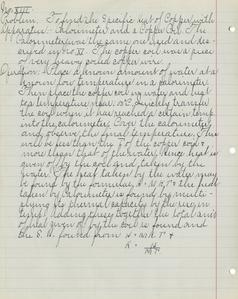 Problem. To find the Specific heat of Copper with
Apparatus. Calorimeter and a Copper Coil. The
calorimeter was the same one used and des-
cribed in No. XI. The copper coil was a piece
of very heavy coiled copper wire.
Operation. Place a known amount of water at a
known low temperature in a calorimeter.
Then place the copper coil in water and heat
to a temperature near 100°C. Quickly transfer the
the coil when it has reached a certain temp.
into the calorimeter. Cover the calorimeter
and observe the final temperature. This
will be less than the T of the copper coil &
more than that of the water. Hence heat is
given off by the coil and taken by the
water. The heat taken by the water may
be found by the formula, H = M.R.T & the heat
taken by calorimeter is found by multi-
plying its thermal capacity by the rise in
temp. Adding these together the total amt.
of heat given off by the coil is found and
the S. H. found from H = M R T &
R = H/MT